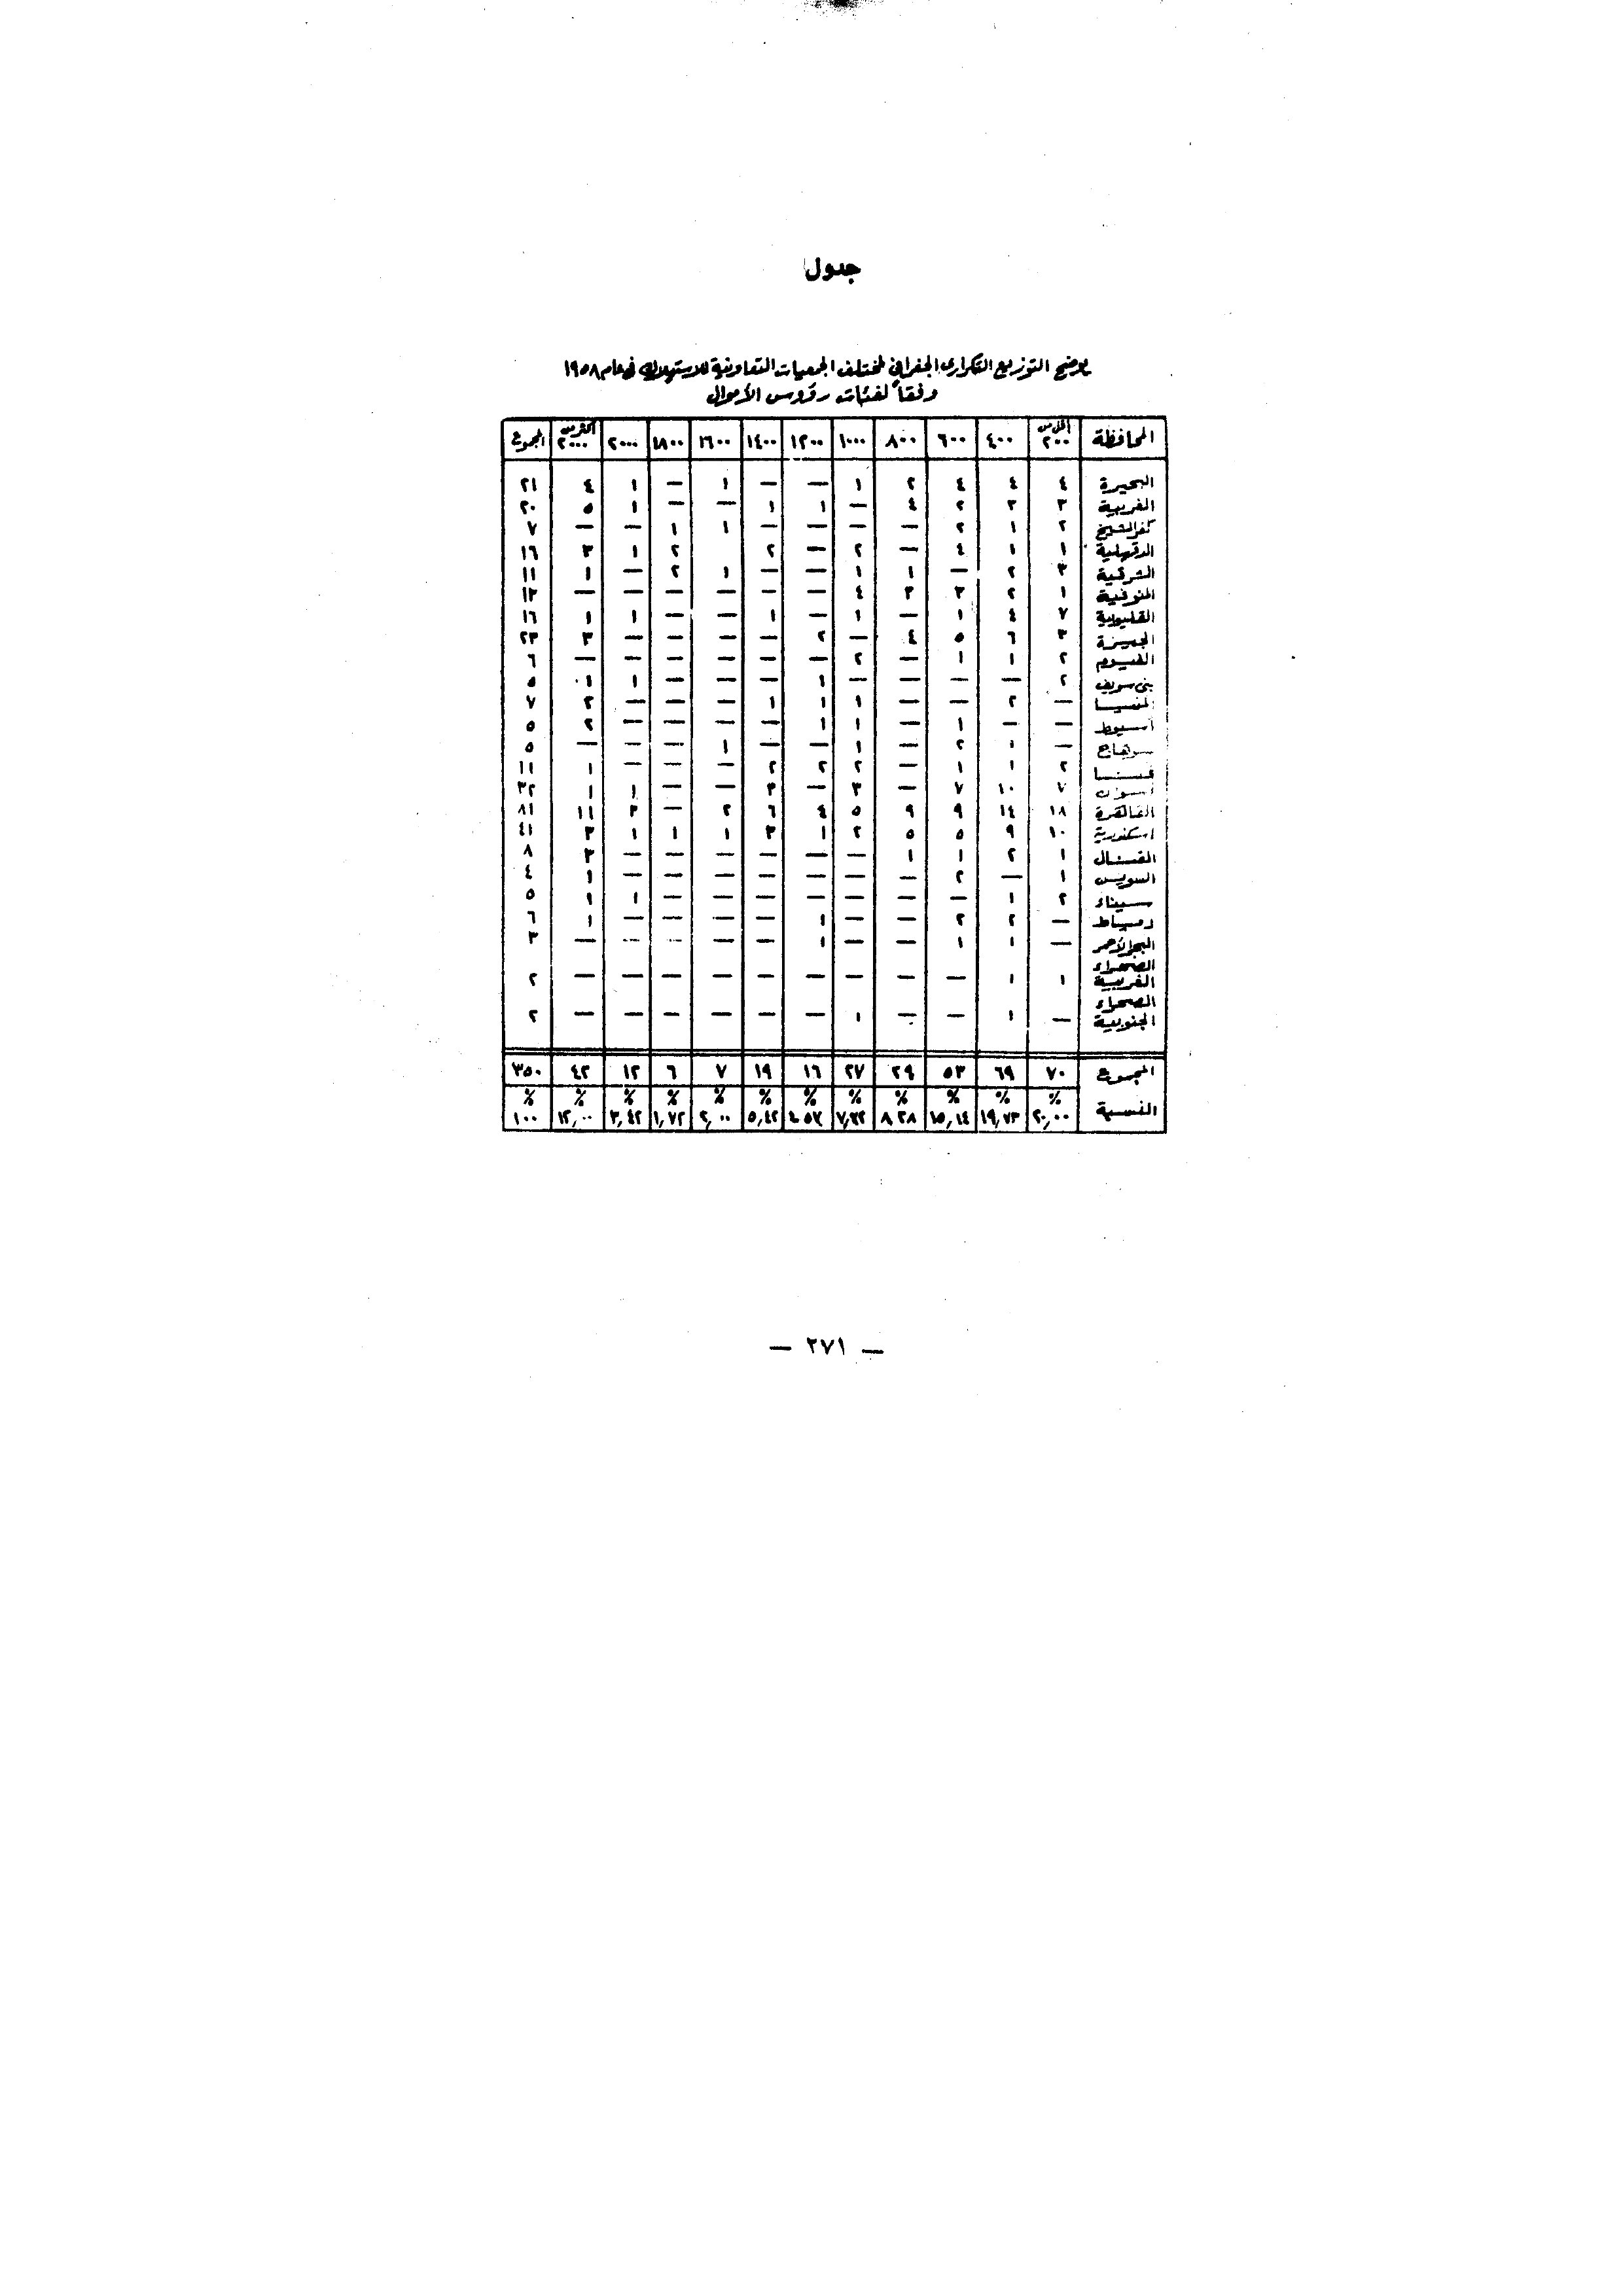 جدول
يوضح التوزيع التكرارى الجغرافى لمختلف الجمعيات التعاونية للاستهلاك فى عام ١٩٥٨
وفقاً لفئات رؤوس الأموال
المحافظة أقل من ٢٠٠ ٤٠٠ ٦٠٠ ٨٠٠ ١٠٠٠ ١٢٠٠ ١٤٠٠ ١٦٠٠ ١٨٠٠ ٢٠٠٠ أكثر من ٢٠٠٠ المجموع
البحيرة ٤ ٤ ٤ ٢ ١ — — ١ — ١ ٤ ٢١
الغربية ٣ ٣ ٢ ٤ — ١ ١ — — ١ ٥ ٢٠
كفر الشيخ ٢ ١ ٢ — — — — ١ ١ — — ٧
الدقهلية ١ ١ ٤ — ٢ — ٢ ٢ ١ ٣ ١٦
الشرقية ٣ ٢ — ١ ١ — — ١ ٢ — ١ ١١
المنوفية ١ ٢ ٣ ٣ ٤ — — — — — — ١٣
القليوبية ٧ ٤ ١ — ١ — ١ — — ١ ١ ١٦
الجيزة ٣ ٦ ٥ ٤ — ٢ — — — — ٣ ٢٣
الفيوم ٢ ١ ١ — ٢ — — — — — — ٦
بنى سويف ٢ — — — — ١ — — — ١ ١ ٥
المنيا — ٢ — — ١ ١ ١ — — — ٢ ٧
أسيوط — — ١ — ١ ١ — — — — ٢ ٥
سوهاج — ١ ٢ — ١ — — ١ — — — ٥
قنا ٢ ١ ١ — ٢ ٢ ٢ — — — ١ ١١
أسوان ٧ ١٠ ٧ — ٣ — ٣ — — ١ ١ ٣٢
القاهرة ١٨ ١٤ ٩ ٩ ٥ ٤ ٦ ٢ — ٣ ١١ ٨١
اسكندرية ١٠ ٩ ٥ ٥ ٢ ١ ٣ ١ ١ ١ ٣ ٤١
القنال ١ ٢ ١ ١ — — — — — — ٣ ٨
السويس ١ — ٢ — — — — — — — ١ ٤
سيناء ٢ ١ — — — — — — — ١ ١ ٥
دمياط — ٢ ٢ — — ١ — — — — ١ ٦
البحر الأحمر — ١ ١ — — ١ — — — — — ٣
الصحراء
الغربية ١ ١ — — — — — — — — — ٢
الصحراء
الجنوبية — ١ — — ١ — — — — — — ٢
المجموع ٧٠ ٦٩ ٥٣ ٢٩ ٢٧ ١٦ ١٩ ٧ ٦ ١٢ ٤٢ ٣٥٠
% % % % % % % % % % % %
النسبة ٢٠,٠٠ ١٩,٧٣ ١٥,١٤ ٨,٢٨ ٧,٧٢ ٤,٥٧ ٥,٤٢ ٢,٠٠ ١,٧٢ ٣,٤٢ ١٢,٠٠ ١٠٠
— ٢٧١ —